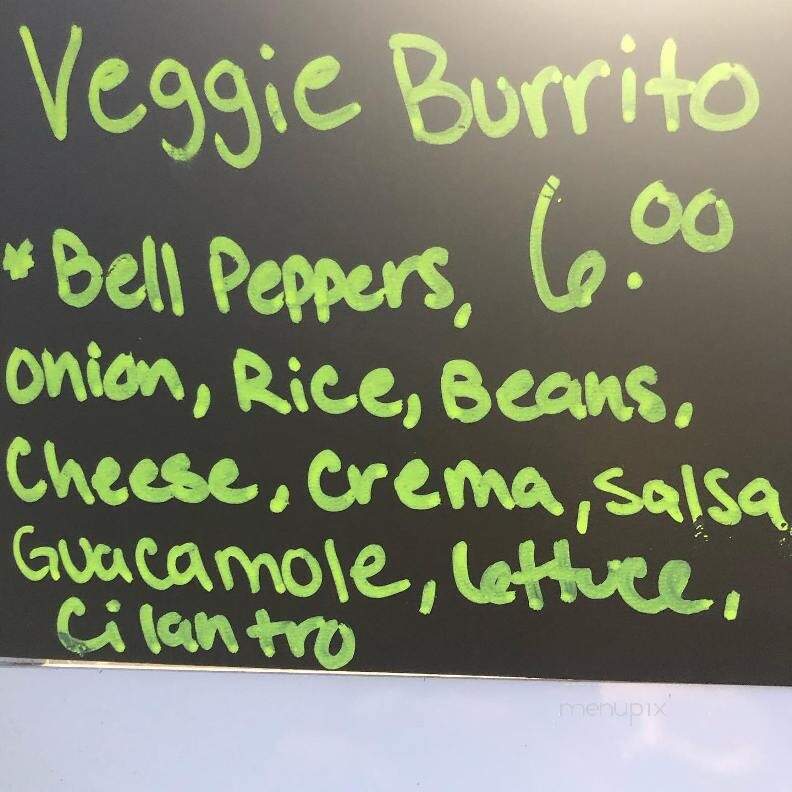 Veggie Burrito
6.00
* Bell Peppers,
Onion, Rice, Beans,
Cheese, Crema, Salsa
Guacamole, Lettuce,
Cilantro
menupix